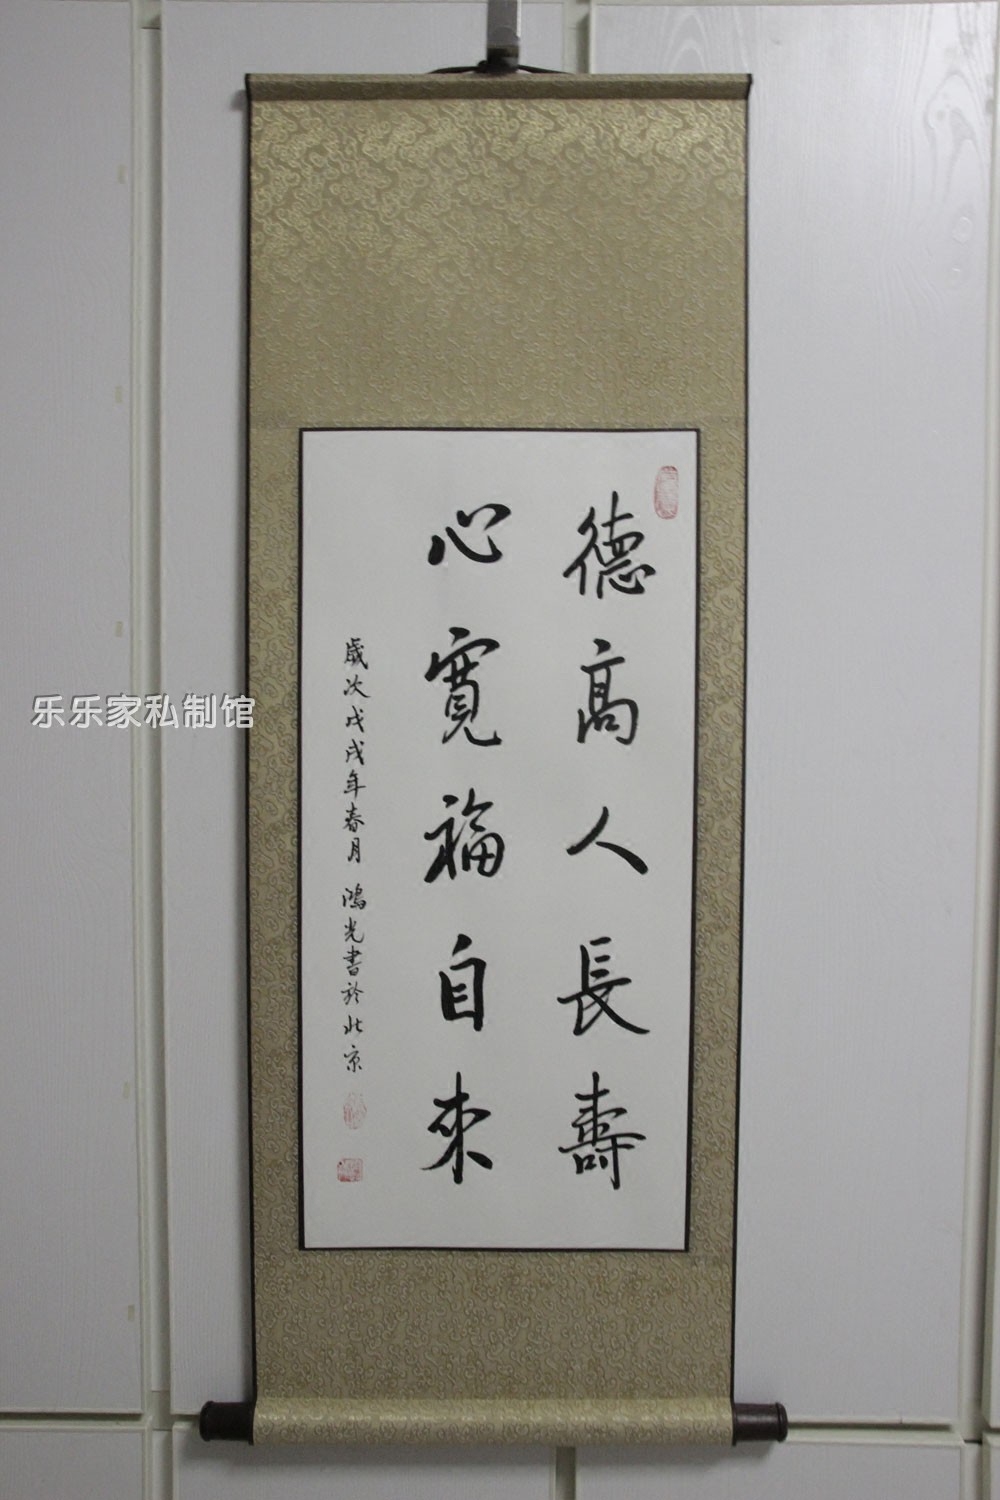 德高人長壽
心寬福自來
歲次戊戌年春月 鴻光書於北京
乐乐家私制馆